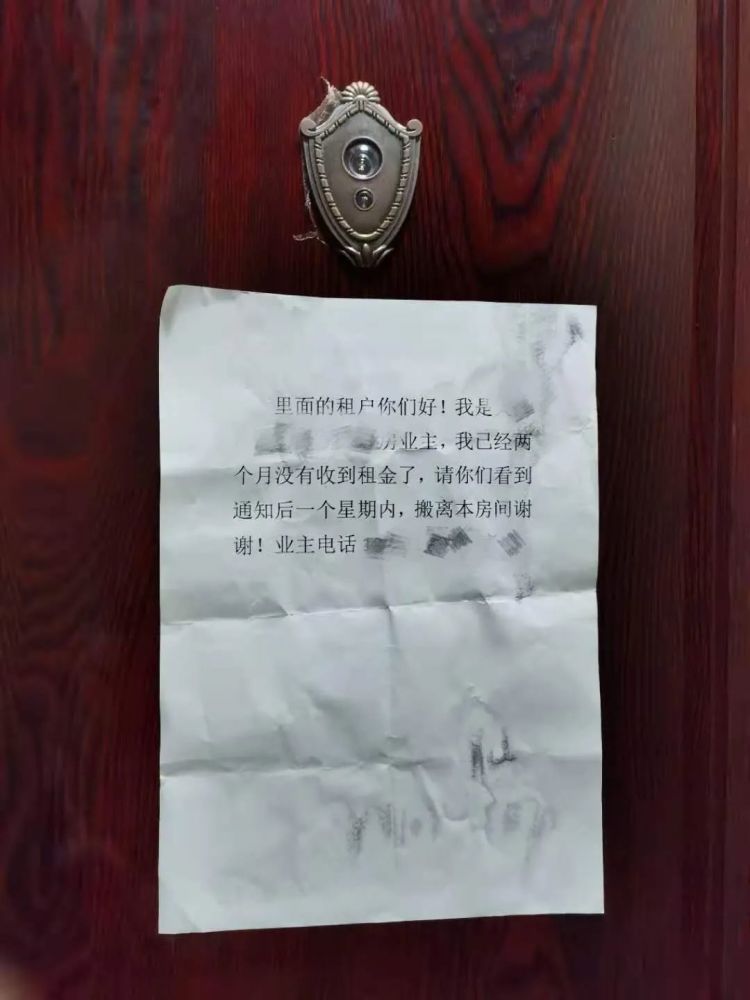 里面的租户你们好！我是
业主，我已经两
个月没有收到租金了，请你们看到
通知后一个星期内，搬离本房间谢
谢！业主电话